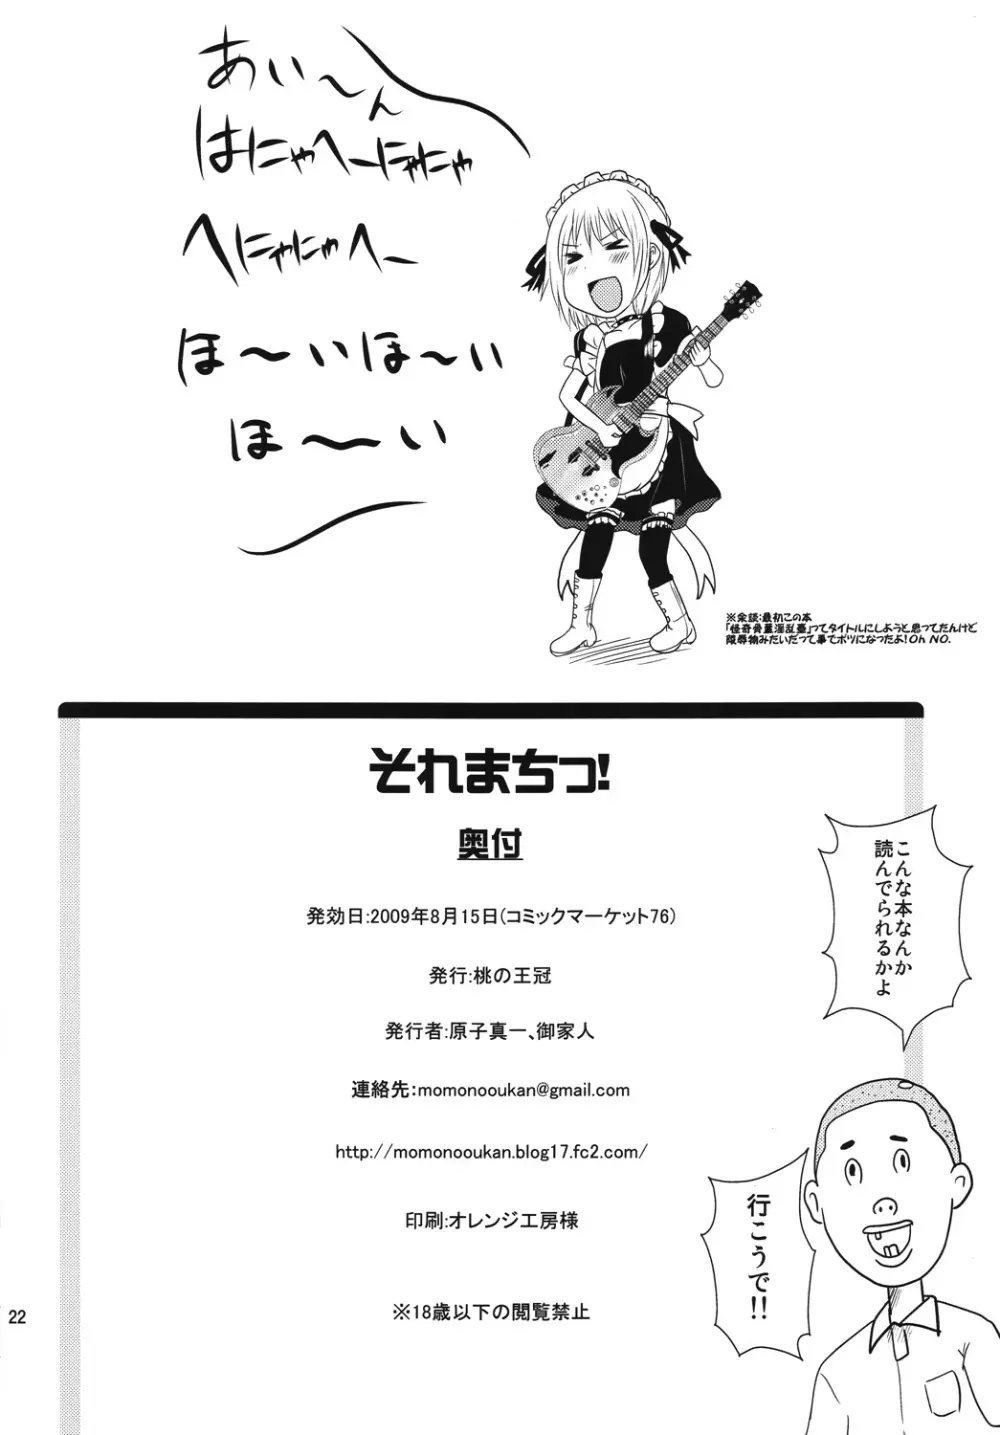 あい〜ん
はにゃへーにゃにゃ
へにゃにゃへー
ほ〜いほ〜い
ほ〜い
※余談:最初この本
「怪奇骨董淫乱臺」ってタイトルにしようと思ってたんけど
陵辱物みたいだって事でボツになったよ!Oh NO.
それまちっ!
奥付
発効日:2009年8月15日(コミックマーケット76)
発行:桃の王冠
発行者:原子真一、御家人
連絡先:momonooukan@gmail.com
http://momonooukan.blog17.fc2.com/
印刷:オレンジ工房様
※18歳以下の閲覧禁止
こんな本なんか
読んでられるかよ
行こうで!!
22